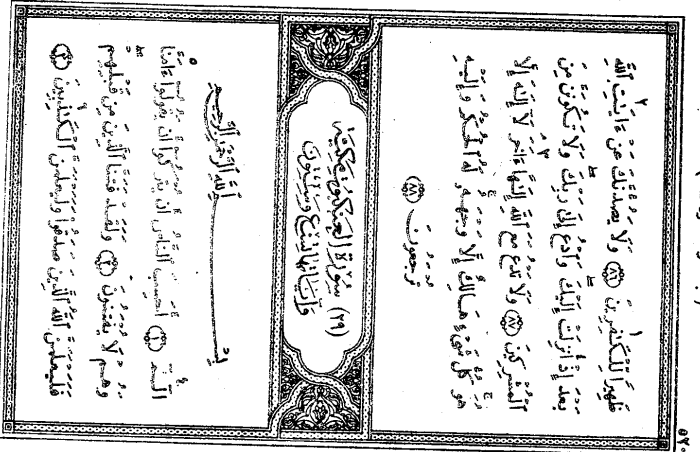 ظَهِيرًا لِّلْكَٰفِرِينَ ﴿٨٦﴾ وَلَا يَصُدُّنَّكَ عَنْ ءَايَٰتِ ٱللَّهِ
بَعْدَ إِذْ أُنزِلَتْ إِلَيْكَ وَٱدْعُ إِلَىٰ رَبِّكَ وَلَا تَكُونَنَّ مِنَ
ٱلْمُشْرِكِينَ ﴿٨٧﴾ وَلَا تَدْعُ مَعَ ٱللَّهِ إِلَٰهًا ءَاخَرَ لَآ إِلَٰهَ إِلَّا
هُوَ كُلُّ شَىْءٍ هَالِكٌ إِلَّا وَجْهَهُۥ لَهُ ٱلْحُكْمُ وَإِلَيْهِ
تُرْجَعُونَ ﴿٨٨﴾
(٢٩) سُورَةُ العَنكبُوتِ مَكِيَّة
وَآيَاتُهَا تِسْعٌ وَسِتُّونَ
بِسْمِ ٱللَّهِ ٱلرَّحْمَٰنِ ٱلرَّحِيمِ
الٓمٓ ﴿١﴾ أَحَسِبَ ٱلنَّاسُ أَن يُتْرَكُوٓا۟ أَن يَقُولُوٓا۟ ءَامَنَّا
وَهُمْ لَا يُفْتَنُونَ ﴿٢﴾ وَلَقَدْ فَتَنَّا ٱلَّذِينَ مِن قَبْلِهِمْ
فَلَيَعْلَمَنَّ ٱللَّهُ ٱلَّذِينَ صَدَقُوا۟ وَلَيَعْلَمَنَّ ٱلْكَٰذِبِينَ ﴿٣﴾